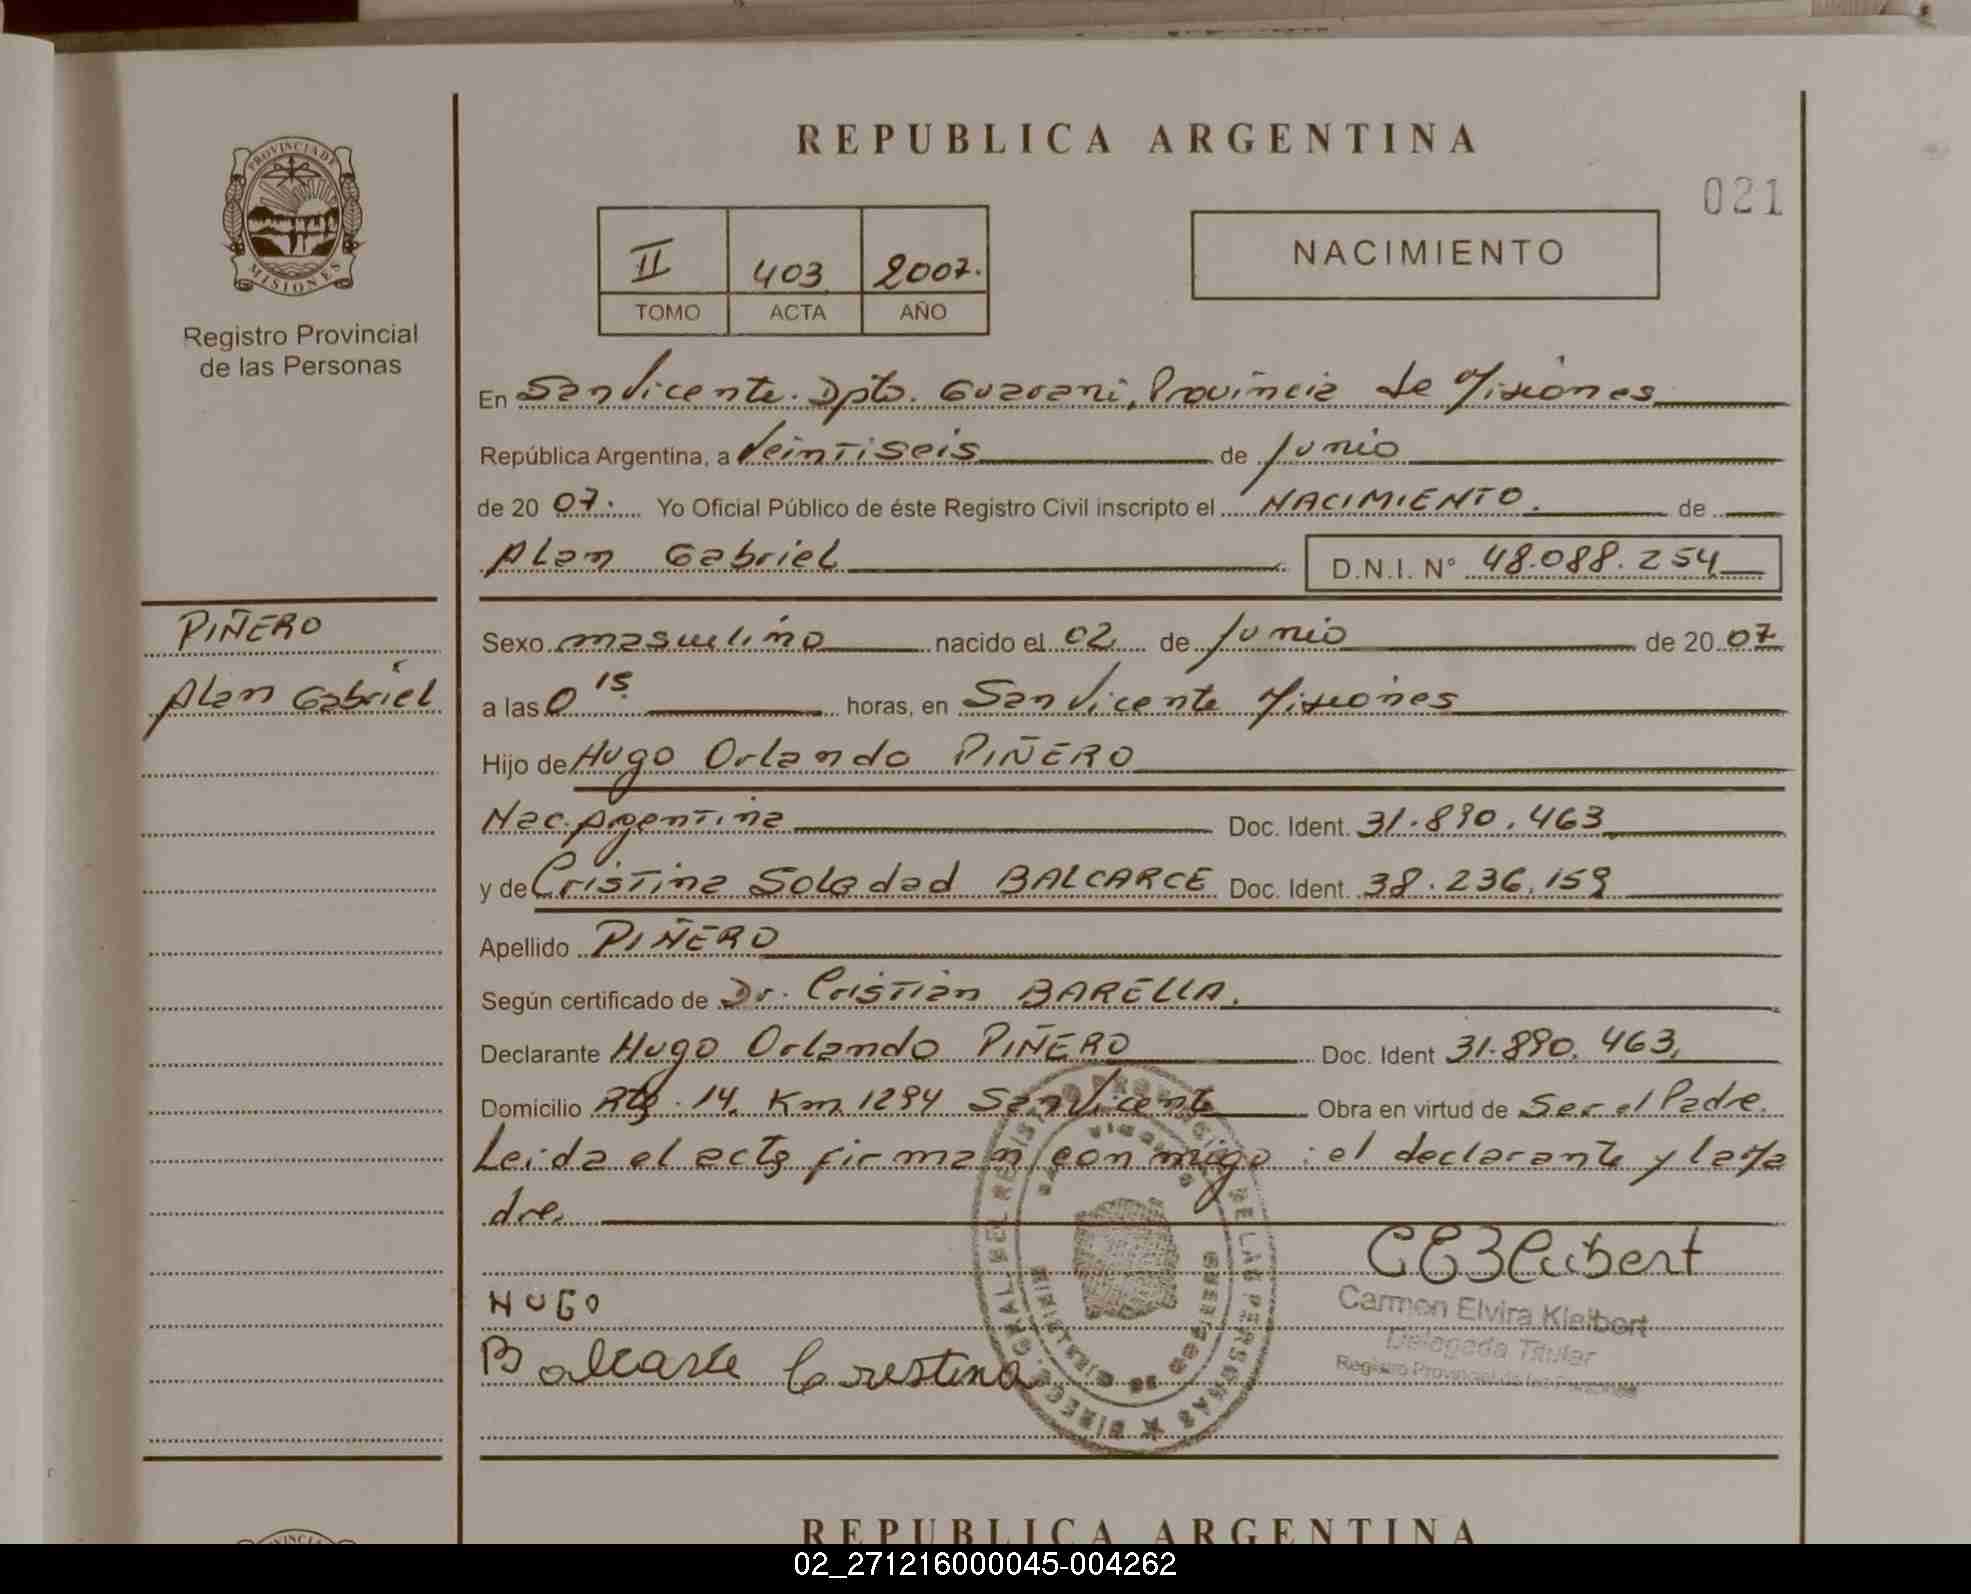 REPUBLICA ARGENTINA
021
PROVINCIA DE
MISIONES
Registro Provincial
de las Personas
II 403 2007.
TOMO ACTA AÑO
NACIMIENTO
En San Vicente. Dpto. Guarani, Provincia de Misiones
República Argentina, a Veintiseis de Junio
de 20 07. Yo Oficial Público de éste Registro Civil inscripto el NACIMIENTO. de
Alan Gabriel D.N.I. N° 48.088.254
PIÑERO
Alan Gabriel
Sexo masculino nacido el 02 de Junio de 20 07
a las 0 15. horas, en San Vicente Misiones
Hijo de Hugo Orlando PIÑERO
Nac. Argentina Doc. Ident. 31.890.463
y de Cristina Soledad BALCARCE Doc. Ident. 38.236.159
Apellido PIÑERO
Según certificado de Dr. Cristian BARELLA.
Declarante Hugo Orlando PIÑERO Doc. Ident 31.890.463,
Domicilio Rta. 14. Km 1294 San Vicente Obra en virtud de Ser el Padre.
Leida el acta firman conmigo: el declarante y la Ma
dre.
HUGO
Balcarse Crestina
Carmen Elvira Kleibert
Delegada Titular
Registro Provincial de las Personas
DIREC. GRAL. DEL REGISTRO PROVINCIAL DE LAS PERSONAS
MINISTERIO DE GOBIERNO
REPUBLICA ARGENTINA
02_271216000045-004262